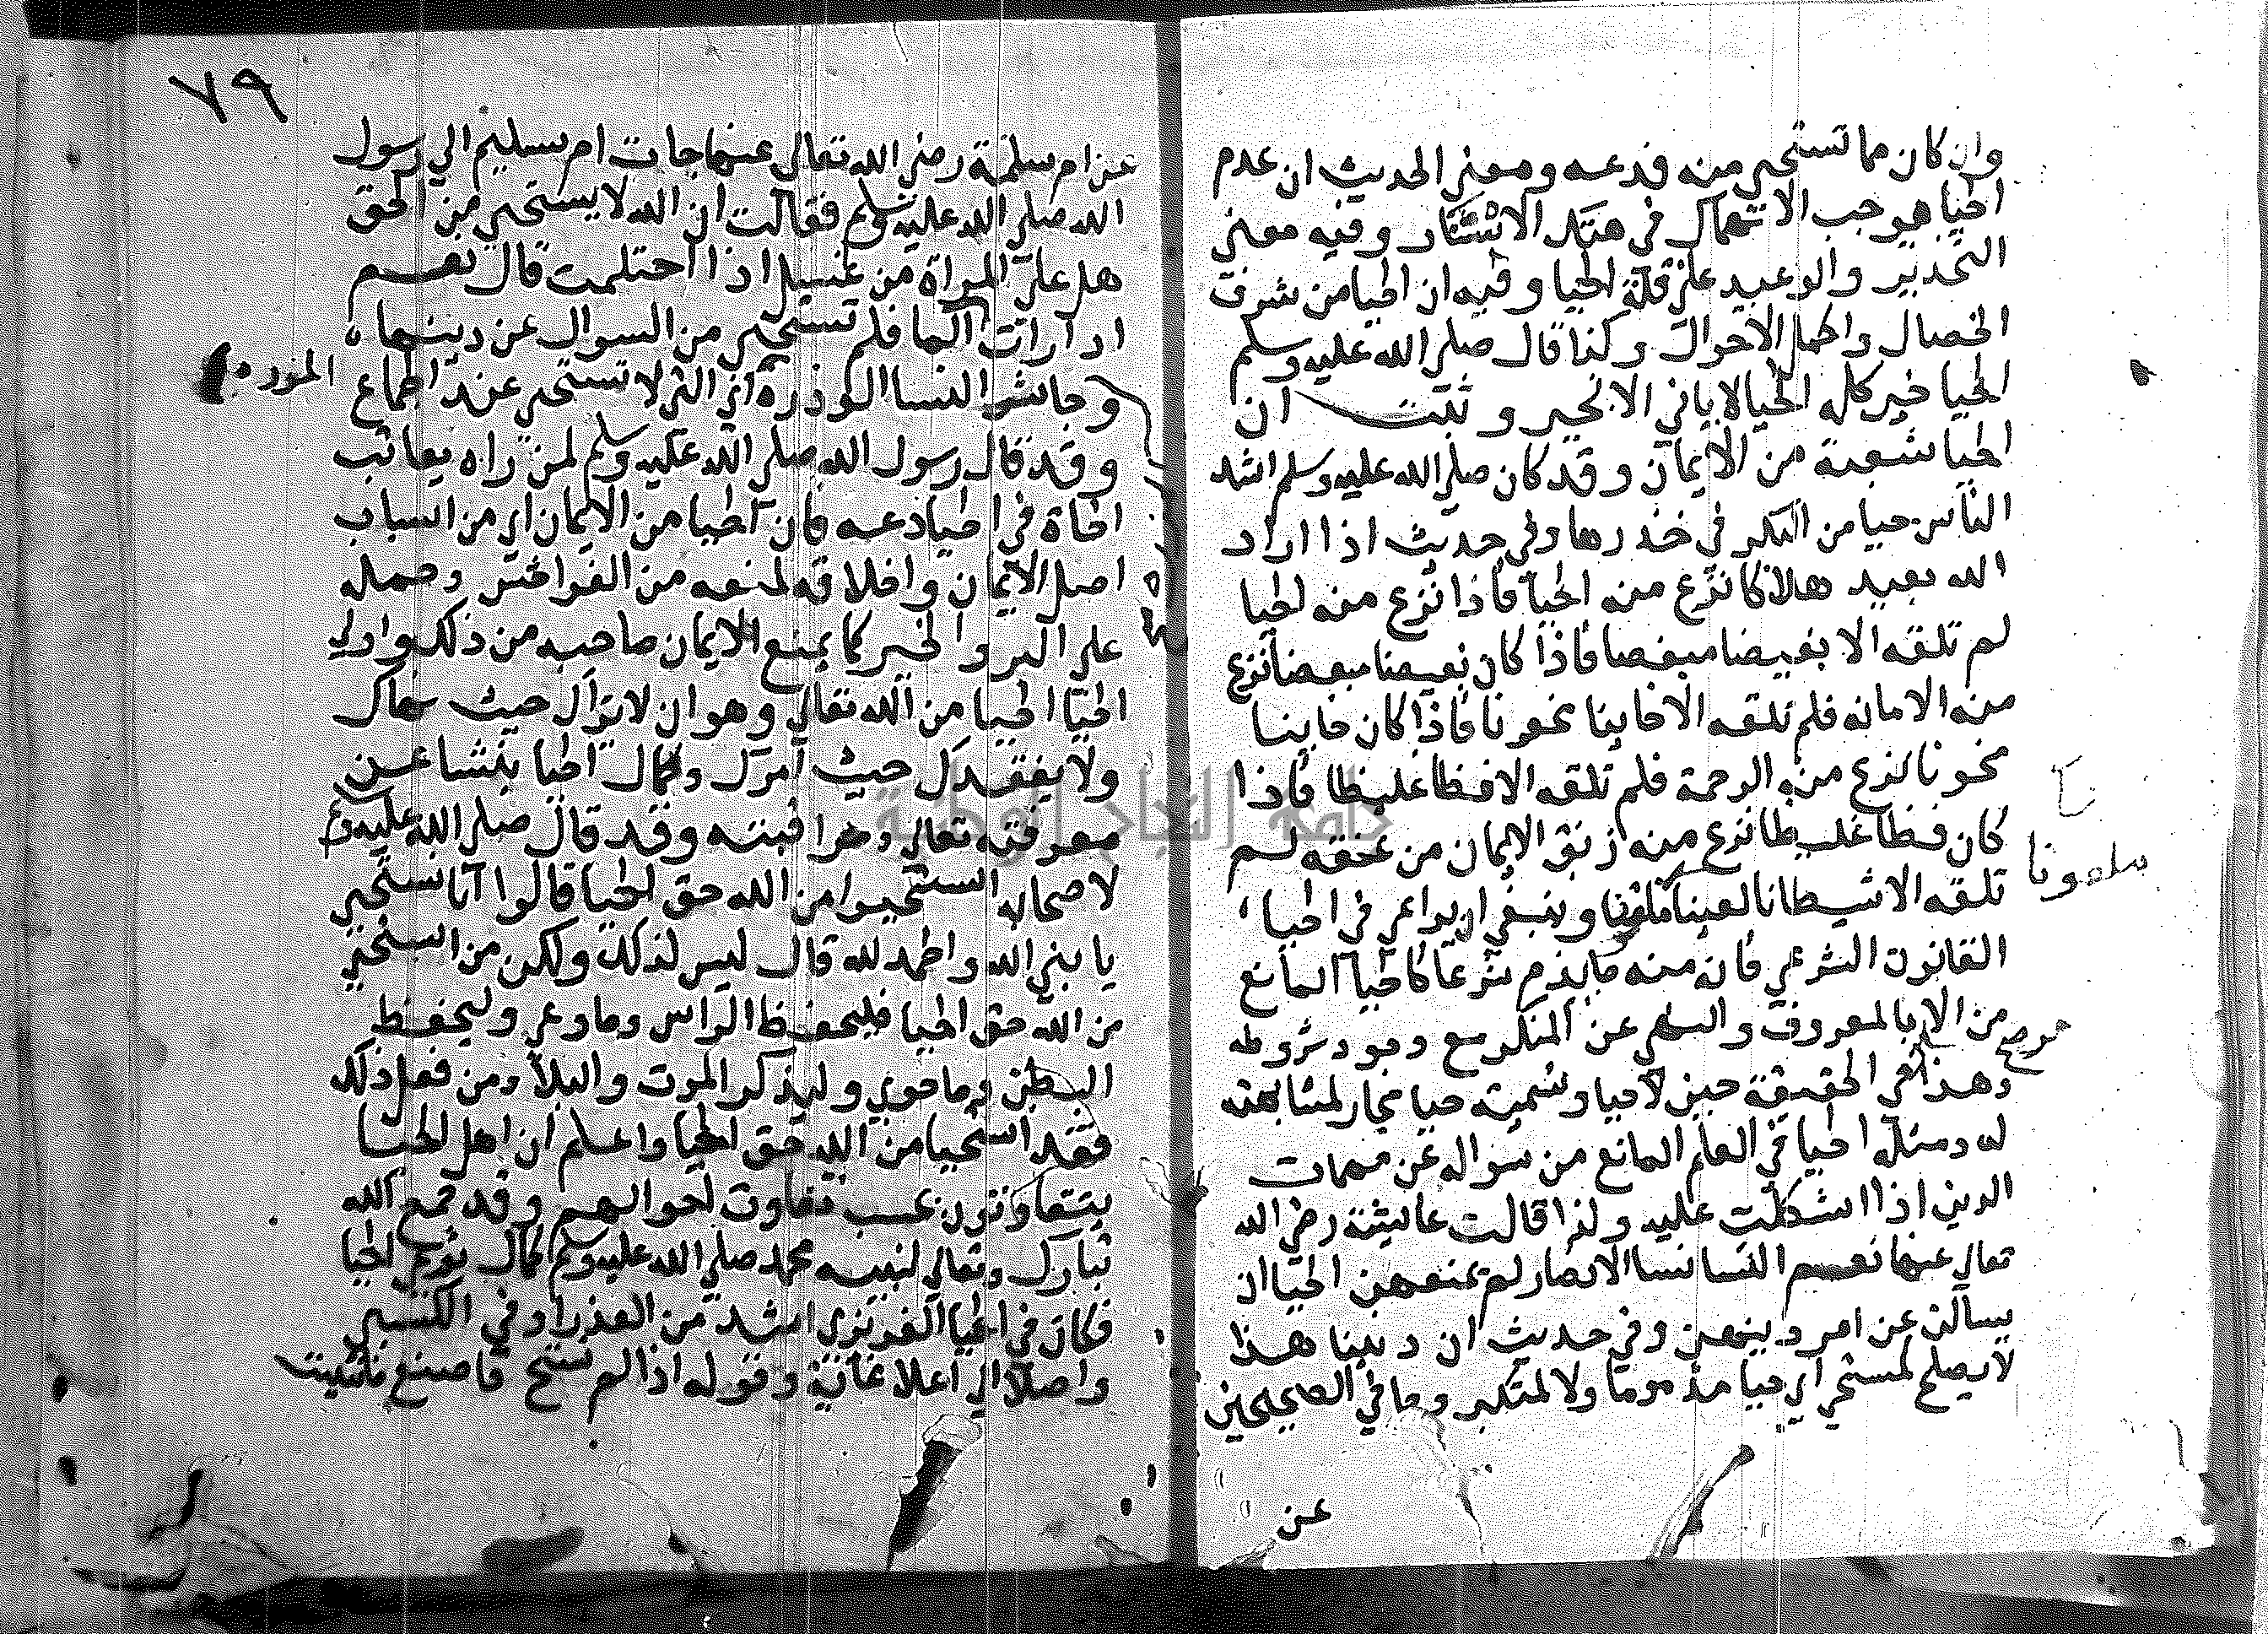 وان كان مما تستحي منه فدعه ومعني الحديث ان عدم
الحيا هو جب الانهماك في هتك الاستتار وفيه معني
التحذير والوعيد علي قلة الحيا وفيه ان الحيا من شرف
الخصال واكمل الاحوال وكذا قال صلي الله عليه وسلم
الحيا خير كله الحيا لا ياتي الا بخير وثبت ان
الحيا شعبة من الايمان وقد كان صلي الله عليه وسلم اشد
الناس حيا من البكر في خدرها وفي حديث اذا اراد
الله بعبد هلاكا نزع منه الحيا فاذا نزع منه الحيا
لم تلقه الا بغيضا مبغضا فاذا كان بغيضا مبغضا نزع
منه الامانه فلم تلقه الا خاينا مخونا فاذا كان خاينا
مخونا نزع منه الرحمة فلم تلقه الا فظا غليظا فاذا
كان فظا غليظا نزع منه ربق الايمان من عنقه لم
تلقه الا شيطانا لعينا ملعونا وينبغي ان يراعي في الحيا
ملعونا
القانون الشرعي فان منه ما يذم شرعا كالحيا المانع
من الامر بالمعروف والنهي عن المنكر مع وجود شروطه
وهذا في الحقيقة جبن لا حيا وتسميته حيا مجاز لمشابهته
له ومثله الحيا في العلم المانع من سواله عن مهمات
الدين اذا اشكلت عليه ولذا قالت عايشة رضي الله
تعالي عنها نعم النسا نسا الانصار لم يمنعهن الحيا ان
يسالن عن امر دينهن وفي حديث ان ديننا هذا
لا يصلح لمستحي اي حيا مذموما ولا لمتكبر وما في الصحيحين
عن
٧٩
عن ام سلمة رضي الله تعالي عنها جات ام سليم الي رسول
الله صلي الله عليه وسلم فقالت ان الله لا يستحي من الحق
هل علي المراة من غسل اذا احتلمت قال نعم
اذا رات الما فلم تستحي من السوال عن دينها
وحاش النسا الوذرة اي التي لا تستحي عند الجماع
وقد قال رسول الله صلي الله عليه وسلم لمن راه يعاتب
اخاه في الحيا دعه فان الحيا من الايمان اي من اسباب
اصل الايمان واخلاقه لمنعه من الفواحش وحمله
علي البر والخير كما يمنع الايمان صاحبه من ذلك واولي
الحيا الحيا من الله تعالي وهو ان لا يراك حيث نهاك
ولا يفقدك حيث امرك وكمال الحيا ينشا عن
معرفته تعالي ومراقبته وقد قال صلي الله عليه وسلم
لاصحابه استحيوا من الله حق الحيا قالوا انا نستحي
يا نبي الله والحمد لله قال ليس لذلك ولكن من استحي
من الله حق الحيا فليحفظ الراس وما وعي وليحفظ
البطن وما حوي وليذكر الموت والبلا ومن فعل ذلك
فقد استحيا من الله حق الحيا واعلم ان اهل الحيا
يتفاوتون بحسب تفاوت احوالهم وقد جمع الله
تبارك وتعالي لنبيه محمد صلي الله عليه وسلم كمال نوعي الحيا
فكان في الحيا الغريزي اشد من العذرا وفي الكسبي
واصلا الي اعلا غاية وقوله اذا لم تستح فاصنع ما شيت